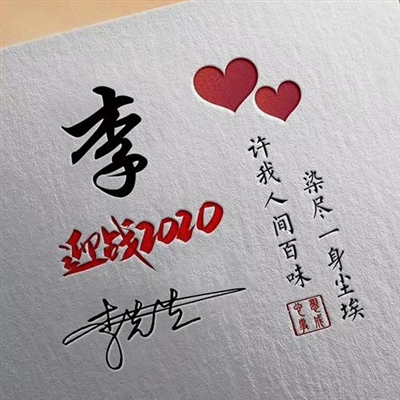 李
迎战2020
染尽一身尘埃
许我人间百味